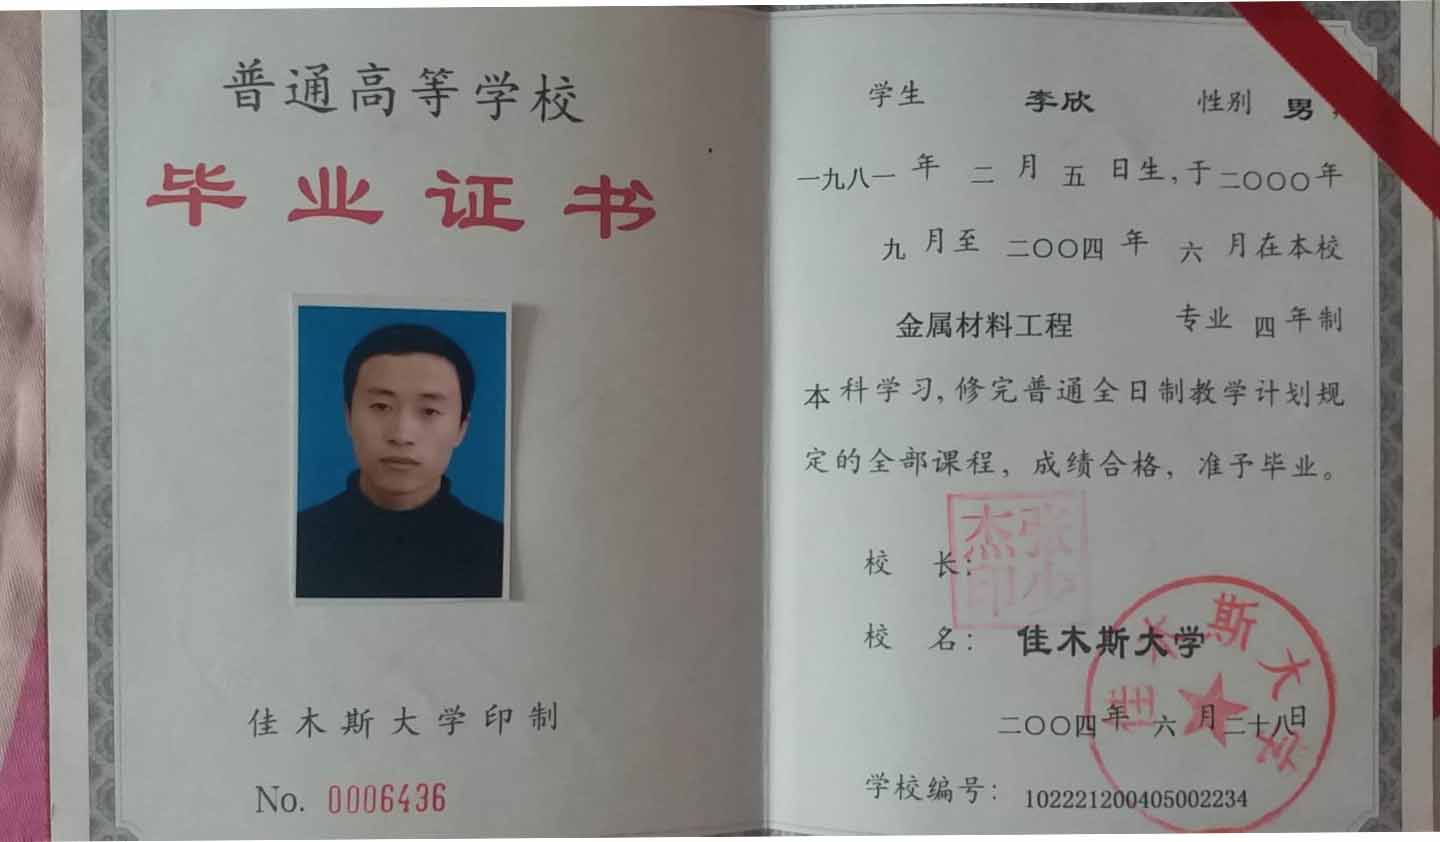 普通高等学校
毕业证书
佳木斯大学印制
No. 0006436
学生 李欣 性别 男,
一九八一 年 二 月 五 日生,于二〇〇〇年
九 月至 二〇〇四 年 六 月在本校
金属材料工程 专业 四 年制
本科学习,修完普通全日制教学计划规
定的全部课程，成绩合格，准予毕业。
校 长:
张少杰印
校 名: 佳木斯大学
佳木斯大学
二〇〇四年 六 月二十八日
学校编号: 102221200405002234